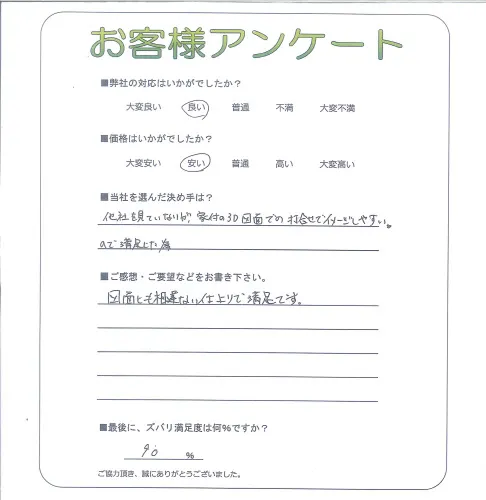 お客様アンケート
■弊社の対応はいかがでしたか?
大変良い 良い 普通 不満 大変不満
■価格はいかがでしたか?
大変安い 安い 普通 高い 大変高い
■当社を選んだ決め手は?
他社を見ていないが、受付の3D図面での打合せでイメージしやすい。
ので満足した為
■ご感想・ご要望などをお書き下さい。
図面とも相違ない仕上りで満足です。
■最後に、ズバリ満足度は何%ですか?
90 %
ご協力頂き、誠にありがとうございました。